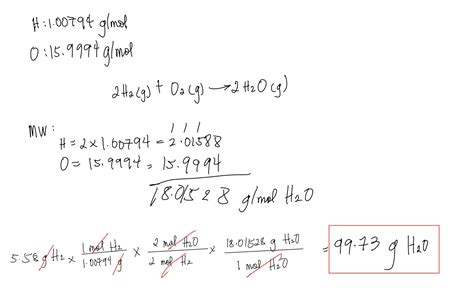 H: 1.00794 g/mol
O: 15.9994 g/mol
2H2(g) + O2(g) → 2H2O(g)
MW:
1 1 1
H = 2 x 1.00794 = 2.01588
O = 15.9994 = 15.9994
18.01528 g/mol H2O
5.58 g H2 x 1 mol H2 / 1.00794 g x 2 mol H2O / 2 mol H2 x 18.01528 g H2O / 1 mol H2O = 99.73 g H2O